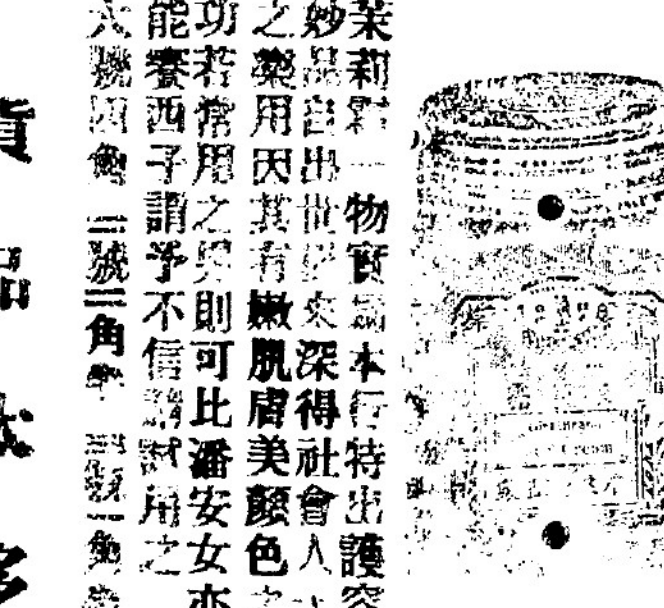 茉莉霜一物實為本行特出護容
妙品自出世以來深得社會人
之樂用因其有嫩肌膚美顏色之
功若常用之男則可比潘安女亦
能賽西子謂予不信請試用之
大號四角 二號三角半 三號二角
貨品